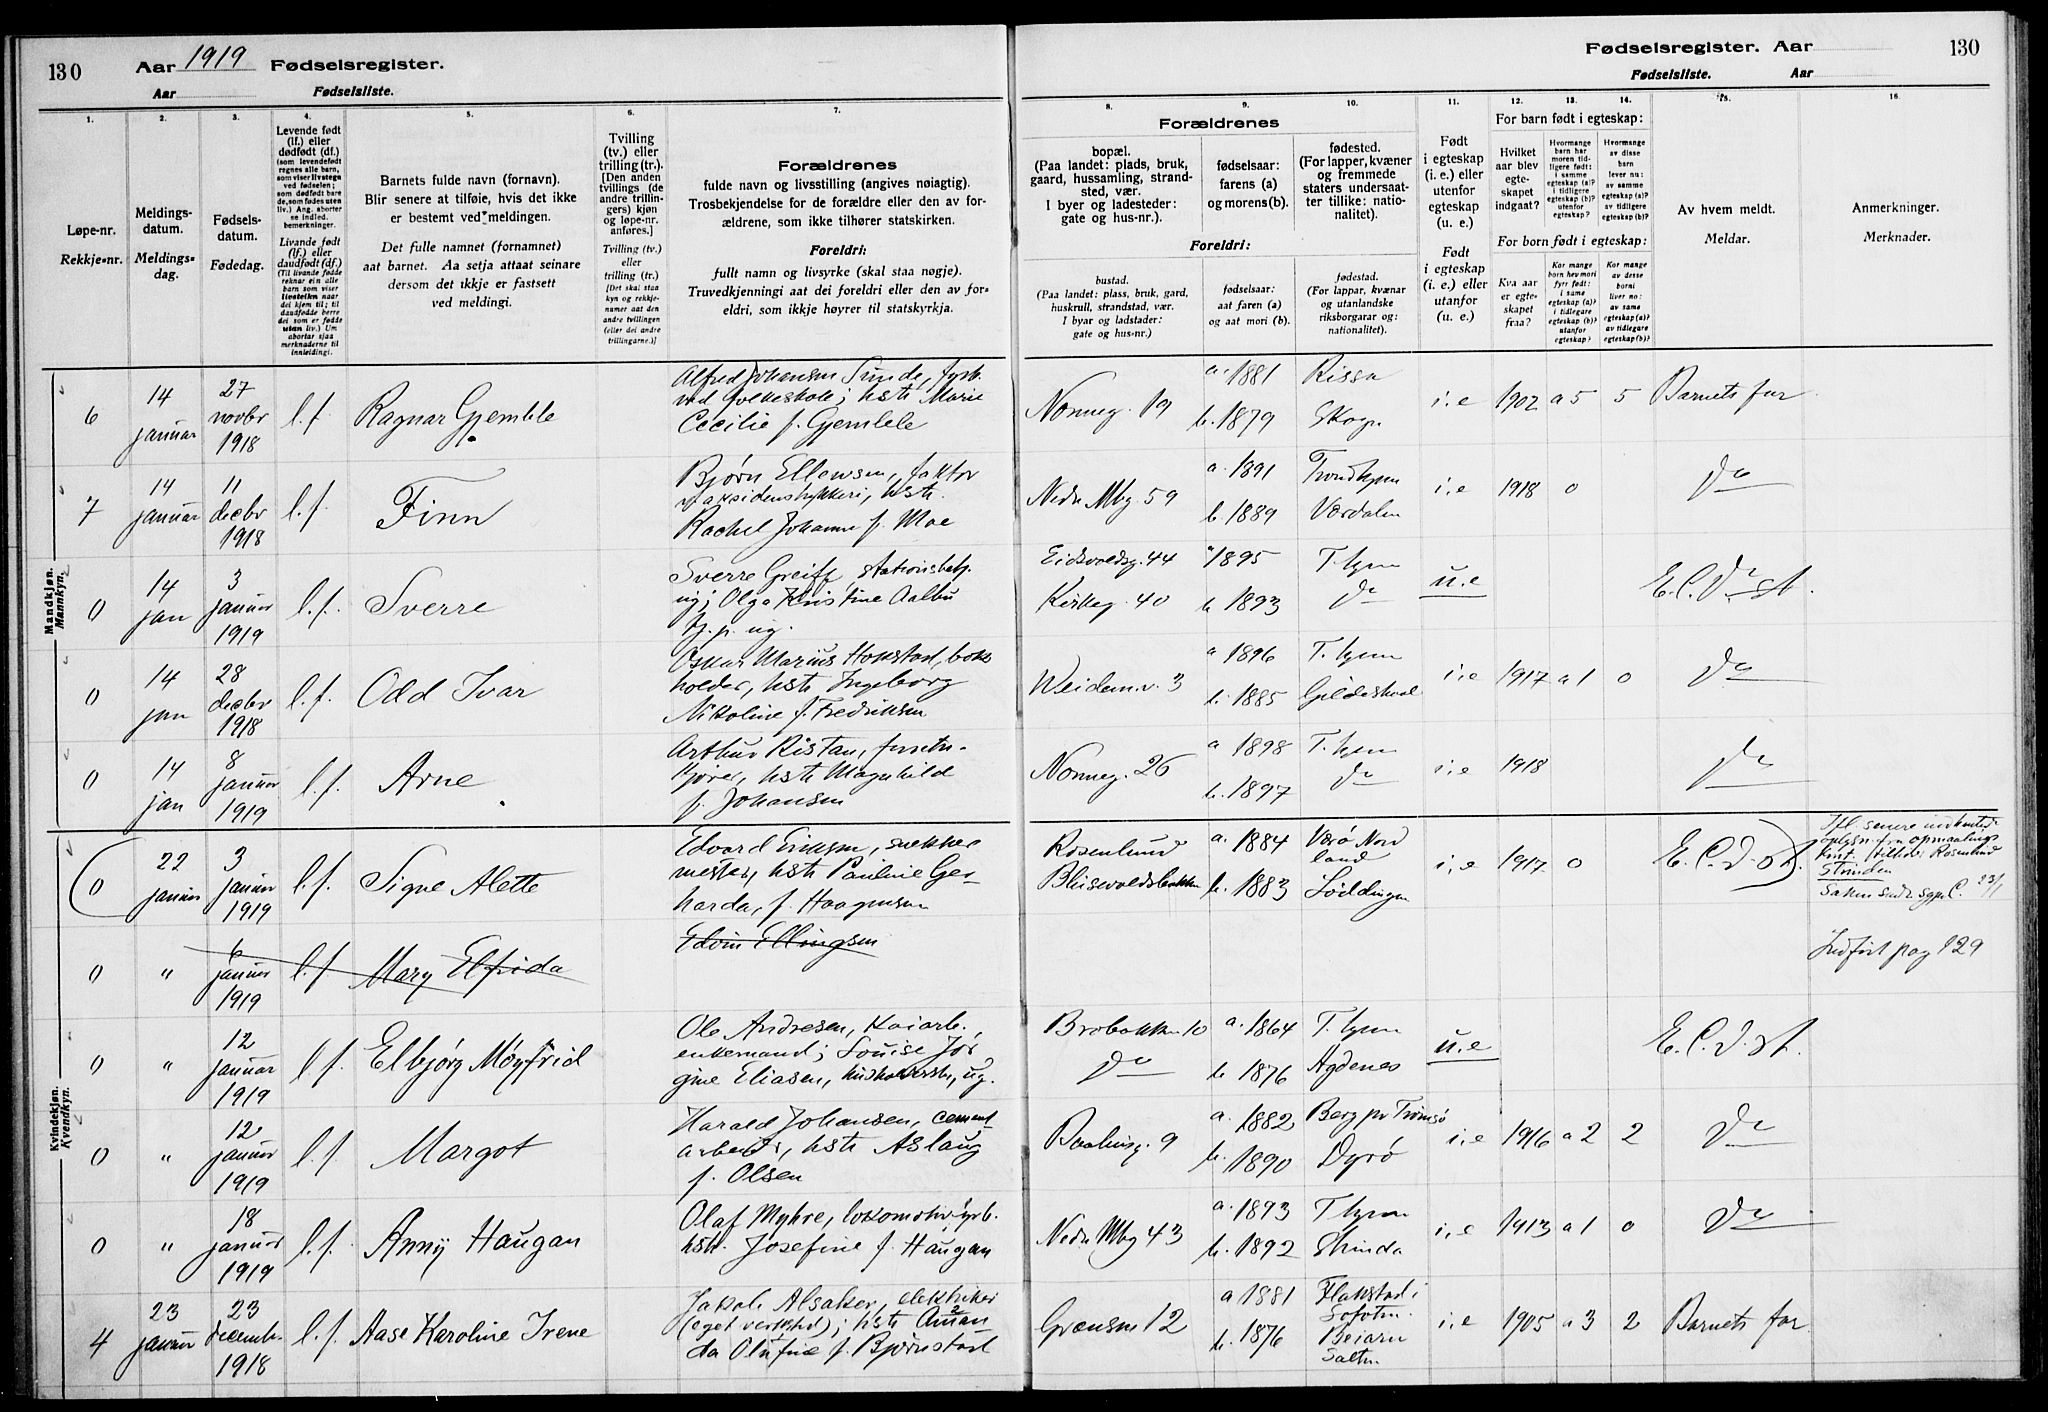 130 Aar 1919 Fødselsregister.
Aar Fødselsliste.
Fødselsregister. Aar 130
Fødselsliste. Aar
1. 2. 3. 4. 5. 6. 7. 8. 9. 10. 11. 12. 13. 14. 15. 16.
Løpe-nr.
Rekkje-nr.
Meldings-
datum.
Meldings-
dag.
Fødsels-
datum.
Fødedag.
Levende født
(lf.) eller
dødfødt (df.)
(som levendefødt
regnes alle barn,
som viser livstegn
ved fødselen;
som dødfødt bare
de, som fødes uten
liv.) Ang. aborter
se indled.
bemerkninger.
Livande født
(lf.) eller
daudfødt (df.)
(Til livande fødde
reknar ein alle
barn som viser
livsteikn naar
dei kjem til; til
daudfødde berre
dei som er fødde
utan liv.) Um
abortar sjaa
merknaderne til
innleidingi.
Barnets fulde navn (fornavn).
Blir senere at tilføie, hvis det ikke
er bestemt ved meldingen.
Det fulle namnet (fornamnet)
aat barnet. Aa setja attaat seinare
dersom det ikkje er fastsett
ved meldingi.
Tvilling
(tv.) eller
trilling (tr.).
[Den anden
tvillings (de
andre trillin-
gers) kjøn
og løpe-nr.
anføres.]
Tvilling (tv.)
eller
trilling (tr.)
[Det skal staa
kyn og rekkje-
numer aat den
andre tvillingen
(eller dei andre
trillingarne.)]
Forældrenes
fulde navn og livsstilling (angives nøiagtig).
Trosbekjendelse for de forældre eller den av for-
ældrene, som ikke tilhører statskirken.
Foreldri:
fullt namn og livsyrke (skal staa nøgje).
Truvedkjenningi aat dei foreldri eller den av for-
eldri, som ikkje høyrer til statskyrkja.
Forældrenes
bopæl.
(Paa landet: plads, bruk,
gaard, hussamling, strand-
sted, vær.
I byer og ladesteder:
gate og hus-nr.).
fødselsaar:
farens (a)
og morens (b).
fødested.
(For lapper, kvæner
og fremmede
staters undersaat-
ter tillike: natio-
nalitet).
Foreldri:
bustad.
(Paa landet: plass, bruk, gard,
huskrull, strandstad, vær.
I byar og ladstader:
gate og hus-nr.)
fødselsaar:
aat faren (a)
og aat mori (b).
fødestad.
(For lappar, kvænar
og utanlandske
riksborgarar og:
nationalitet).
Født
i egteskap
(i. e.) eller
utenfor
egteskap
(u. e.)
Født
i egteskap
(i. e.) eller
utanfor
(u. e.)
For barn født i egteskap:
Hvilket
aar blev
egte-
skapet
indgaat?
Hvormange
barn har
moren tid-
ligere født:
i samme
egteskap (a)?
i tidligere
egteskap (b)?
utenfor
egteskap?
Hvormange
av disse
barn
lever nu:
av samme
egteskap (a)?
av tidligere
egteskap (b)?
For born født i egteskap:
Kva aar
er egte-
skapet
fraa?
Kor mange
born hev mori
fyrr født:
i same
egteskap (a)?
i tidlegare
egteskap (b)?
utanfor
egteskap?
Kor mange
av desse
borni
liver no:
av same
egteskap (a)?
av tidlegare
egteskap (b)?
Av hvem meldt.
Meldar.
Anmerkninger.
Merknader.
Mandkjøn.
Mannkyn.
6 14 januar 27 novbr 1918 l. f. Ragnar Gjemble
Alfred Johansen Sunde, fyrb.
ved folkeskole; hstr Marie
Cecilie f. Gjemble
Nonneg. 19 a. 1881 Rissa i, e 1902 a 5 5 Barnets far
b. 1879 Skogn
7 14 januar 11 decbr 1918 l. f. Finn
Bjørn Ellewsen, faktor
hstr.
Rachel Johanne f. Moe
Nedr. Mbg. 59 a. 1891 Trondhjem i, e 1918 0 Do
b. 1889 Værdalen
0 14 jan 3 januar 1919 l. f. Sverre
Sverre Greiff, stationsbetj.
ug; Olga Kristine Aalbu
tj. p. ug.
Eidsvoldsg. 44 a 1895 T. hjem u. e E. C. D. st.
Kirkeg. 40 b 1893 Do
0 14 jan 28 decbr 1918 l. f. Odd Ivar
Oskar Marius Hokstad, bok-
holder, hstr Ingeborg
Nikoline f. Fredriksen
Weidem.v. 3 a 1896 T. hjem i, e 1917 a 1 0 Do
b. 1885 Gildeskaal
0 14 jan 8 januar 1919 l. f. Arne
Arthur Ristan,
kjører, hstr Magnhild
f. Johansen
Nonneg. 26 a 1898 T. hjem i, e 1918 Do
b. 1897 Do
Kvindekjøn.
Kvendkyn.
0 22 januar 3 januar 1919 l. f. Signe Alette
Edvard Eriksen, snekker
mester, hstr Pauline Ger-
harda, f. Haagensen
Rosenlund a. 1884 Værø Nord i, e 1917 0 E. C. D. st.
land
Blusevoldsbakken b. 1883 Lødingen
Ifl. senere indhentede
oplysn. fra opmaalings
kont. tilhører Rosenlund
Strinden
Saken sendt sgpr C. 23/1
0 " 6 januar 1919 l. f. Mary Elfrida
Edvin Ellingsen
Indført pag 129
0 " 12 januar 1919 l. f. Elbjørg Møyfrid
Ole Andresen, Kaiarb.,
enkemand; Louise Jør
gine Eliasen, husholderske, ug.
Brobakken 10 a. 1864 T. hjem u. e E. C. D. st.
Do b 1876 Agdenes
0 " 12 januar 1919 l. f. Margot
Harald Johansen, cement
arbeider, hstr Aslaug
f. Olsen
9 a. 1882 Berg pr Tromsø i, e 1916 a 2 2 Do
b. 1890 Dyrø
0 " 18 januar 1919 l. f. Anny Haugan
Olaf Myhre, lokomotivfyrb.
hstr. Josefine f. Haugan
Nedr. Mbg 43 a. 1893 T hjem i, e 1913 a 1 0 Do
b. 1892 Strinda
4 23 januar 23 decemb. 1918 l. f. Aase Karoline Irene
Jakob Alsaker, elektriker
(eget verksted); hstr Aman
da Olufine f. Bjørnstad
Grænsen 12 a 1881 Flakstad i i, e 1905 a 3 2 Barnets far
Lofoten
b. 1876 Beiarn
Salten